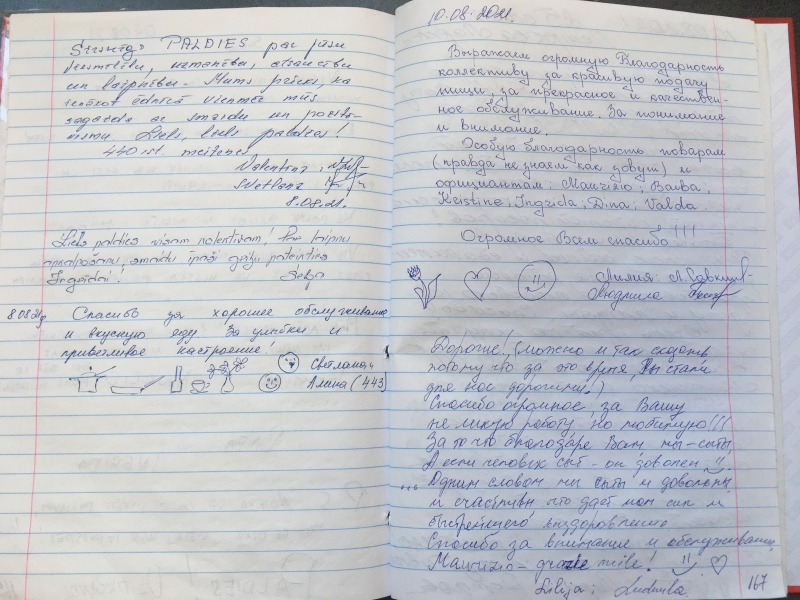 Sirsnīgs PALDIES par jūsu
uzmanību,
un laipnību. Mums prieks, ka
vienmēr mūs
ar smaidu un
Liels, liels paldies!
440 ist. meitenes
Valentina
Svetlana
8.08.21.
Liels paldies visam kolektīvam! Par
smaidu īpaši
8.08.21g Спасибо за хорошее обслуживание
и вкусную еду За улыбки и
приветливое настроение!
Светлана и
Алина (443)
10.08.2021.
Выражаем огромную Благодарность
коллективу за красивую подачу
пищи, за прекрасное и качествен-
ное обслуживание. За понимание
и внимание.
Особую благодарность поварам
(правда не знаем как зовут) и
официантам: Maurizio; Baiba;
Kristine; Ingrida; Dina; Valda.
Огромное Вам спасибо!!!
Лилия:
Людмила
Дорогие! (можно и так сказать
потому что за это время, Вы стали
для нас дорогими.)
Спасибо огромное, за Вашу
не лёгкую работу но любимую!!!
За то что благодаря Вам мы - сыты
А если человек сыт - он доволен
... Одним словом мы сыты и довольны
и счастливы, что даёт нам сил и
быстрейшего выздоровление
Спасибо за внимание и обслуживание
Maurizio - grazie mile!
Lilija; Ludmila.
167